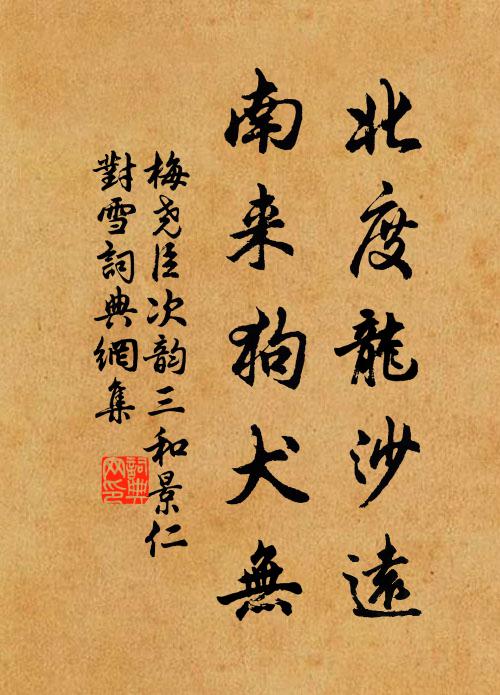 北度龍沙遠
南来狗犬無
梅尧臣次韵三和景仁
對雪詞典網集
詞典
网印